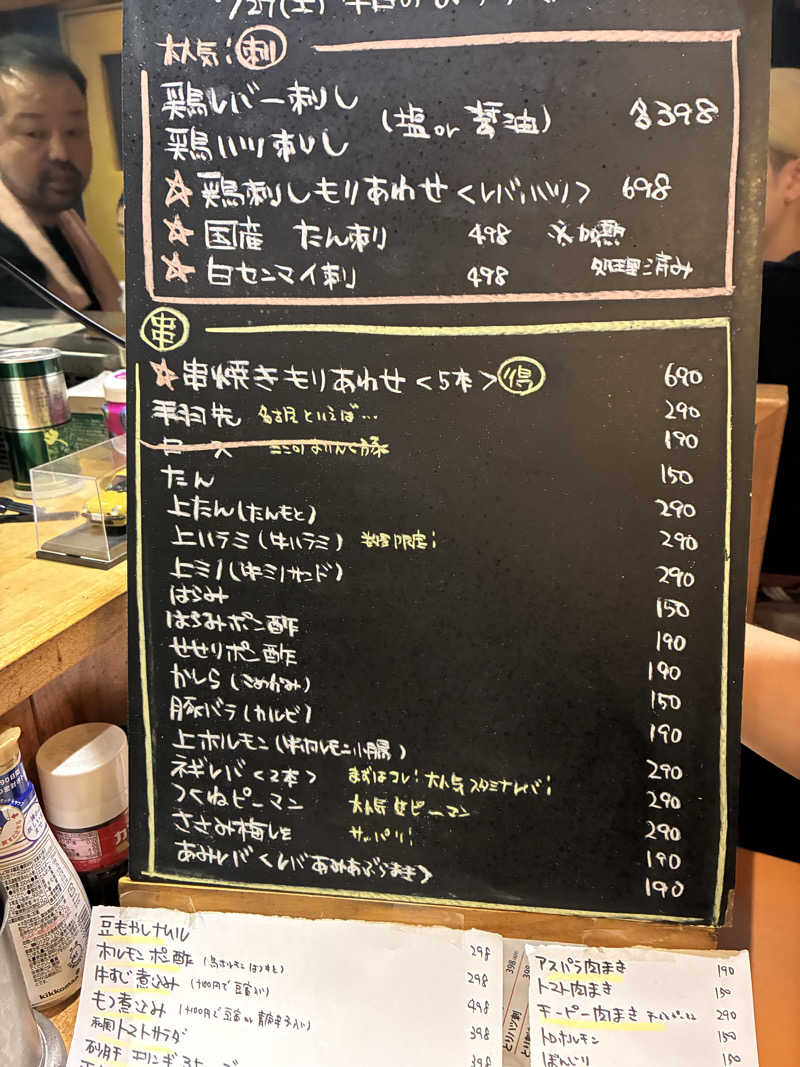 大人気! 刺
鶏レバー刺し
(塩or醤油) 各398
鶏ハツ刺し
☆鶏刺しもりあわせ<レバ,ハツ> 698
☆国産 たん刺 498 ※加熱
☆白センマイ刺 498 処理済み
串
☆串焼きもりあわせ<5本> 得 690
手羽先 名古屋といえば… 290
ロース 190
たん 150
上たん(たんもと) 290
上ハラミ(牛ハラミ) 数量限定! 290
上ミノ(牛ミノサンド) 290
はらみ 150
はらみポン酢 190
せせりポン酢 190
かしら(こめかみ) 150
豚バラ(カルビ) 190
上ホルモン(牛ホルモン小腸) 290
ネギレバ<2本> まずはコレ!大人気スタミナレバ! 290
つくねピーマン 大人気 生ピーマン 290
ささみ梅しそ サッパリ! 190
あみレバ<レバあみあぶらまき> 190
豆もやしナムル 298
ホルモンポン酢 298
牛すじ煮込み (+100円で豆富入り) 498
もつ煮込み (+100円で豆富or 398
和風トマトサラダ 398
砂肝
アスパラ肉まき 190
トマト肉まき 150
チーピー肉まき 290
トロホルモン 150
ぼんじり 150
とりハツ刺
398
kikkoman